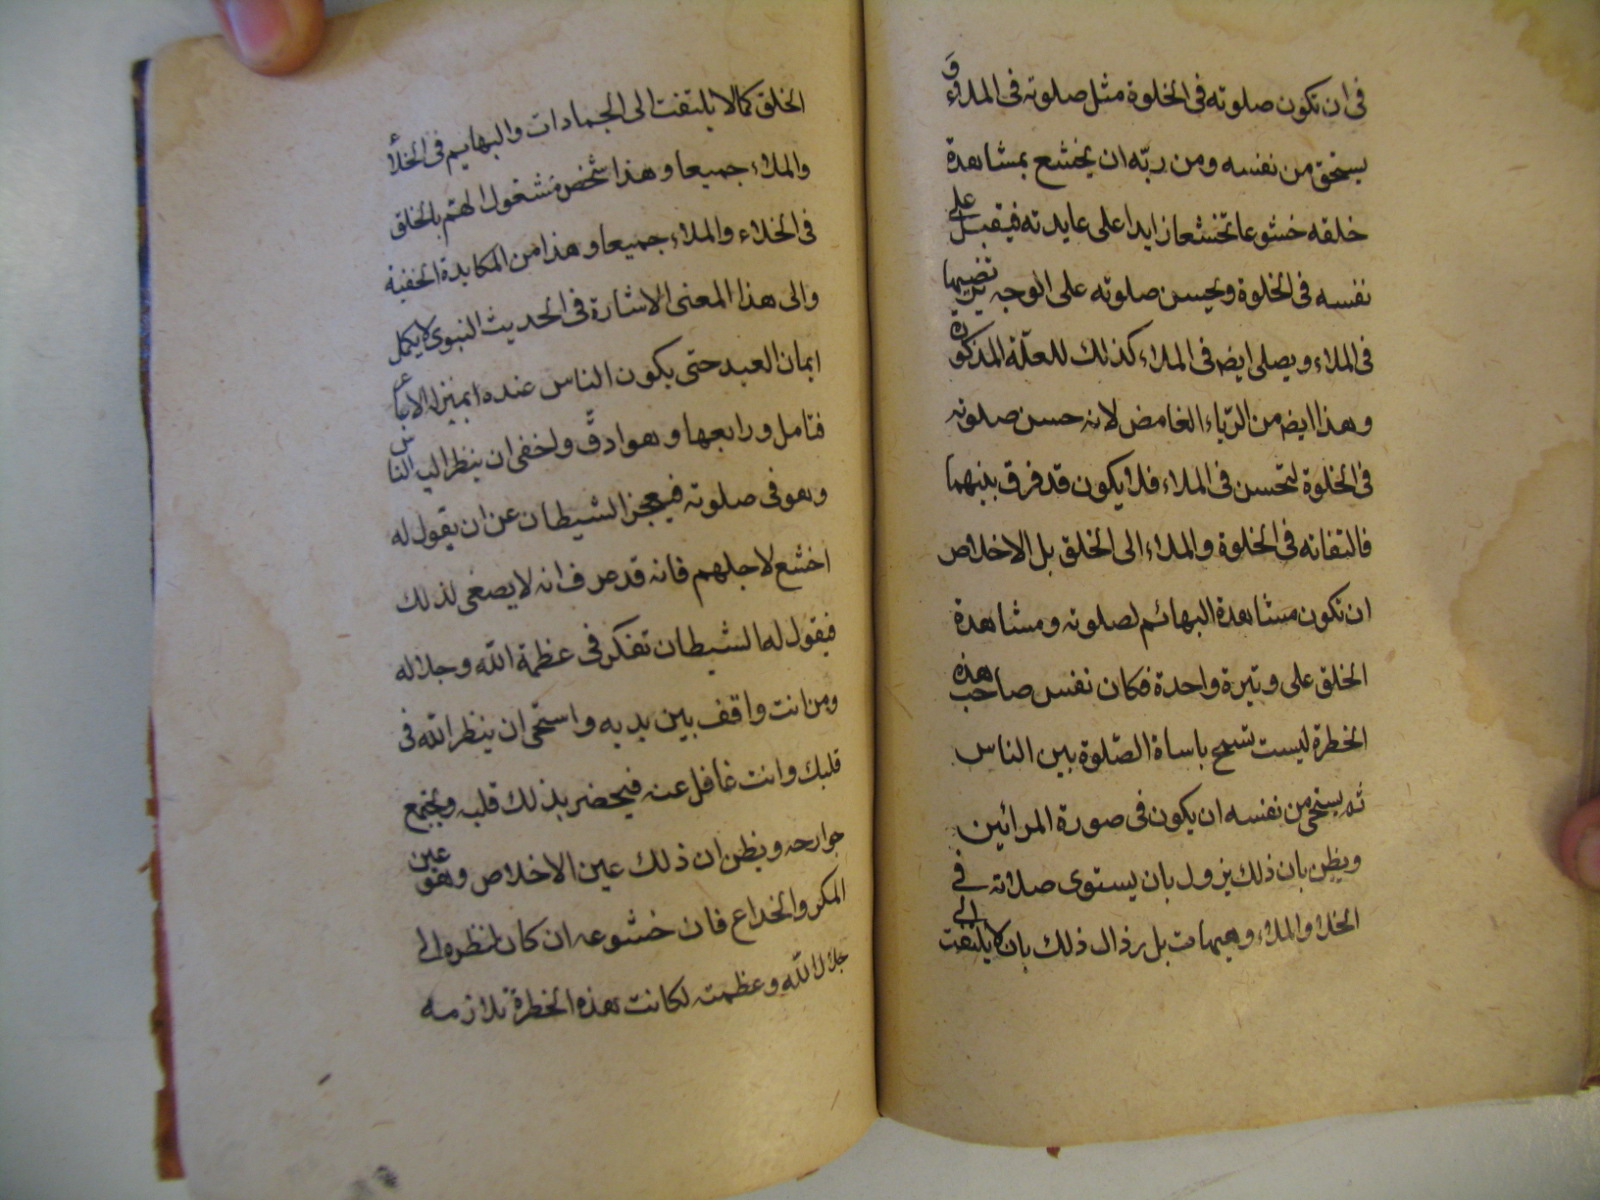 فى ان تكون صلوته فى الخلوة مثل صلوته فى الملاء و
يستحق من نفسه ومن ربّه ان يخشع بمشاهدة
خلقه خشوعا تخشعا زايدا على عايدته فيقبل على
نفسه فى الخلوة ويحسن صلوته على الوجه
فى الملاء ويصلى ايضه فى الملاء كذلك للعلّة المذكورة
وهذا ايضه من الرّياء الغامض لانه حسن صلوته
فى الخلوة لتحسن فى الملاء فلا يكون قد فرق بينهما
فالتفاته فى الخلوة والملاء الى الخلق بل الاخلاص
ان تكون مشاهدة البهائم لصلوته ومشاهدة
الخلق على وتيرة واحدة فكان نفس صاحب هذه
الخطرة ليست تسمح باساة الصّلوة بين الناس
ثم يستحى من نفسه ان يكون فى صورة المرائين
ويظن بان ذلك يزول بان يستوى صلاته فى
الخلا والملاء وهيهات بل زوال ذلك بان لا يلتفت الى
الخلق كما لا يلتفت الى الجمادات والبهايم فى الخلأ
والملاء جميعا وهذا شخص مشغول الهمّ بالخلق
فى الخلاء والملاء جميعا وهذا من المكايدة الخفية
والى هذا المعنى الاشارة فى الحديث النبوى لا يكمل
ايمان العبد حتى يكون الناس عنده بمنزلة الاباعر
فتامل ورابعها وهو ادقّ واخفى ان ينظر اليه الناس
وهو فى صلوته فيعجز الشيطان عن ان يقول له
اخشع لاجلهم فانه قد عرف انه لا يصغى لذلك
فيقول له الشيطان تفكر فى عظمة الله وجلاله
ومن انت واقف بين يديه واستحى ان ينظر الله فى
قلبك وانت غافل عنه فيحضر بذلك قلبه ويجتمع
جوارحه ويظن ان ذلك عين الاخلاص وهو عين
المكر والخداع فان خشوعه ان كان لنظره الى
جلال الله وعظمته لكانت هذه الخطرة تلازمه